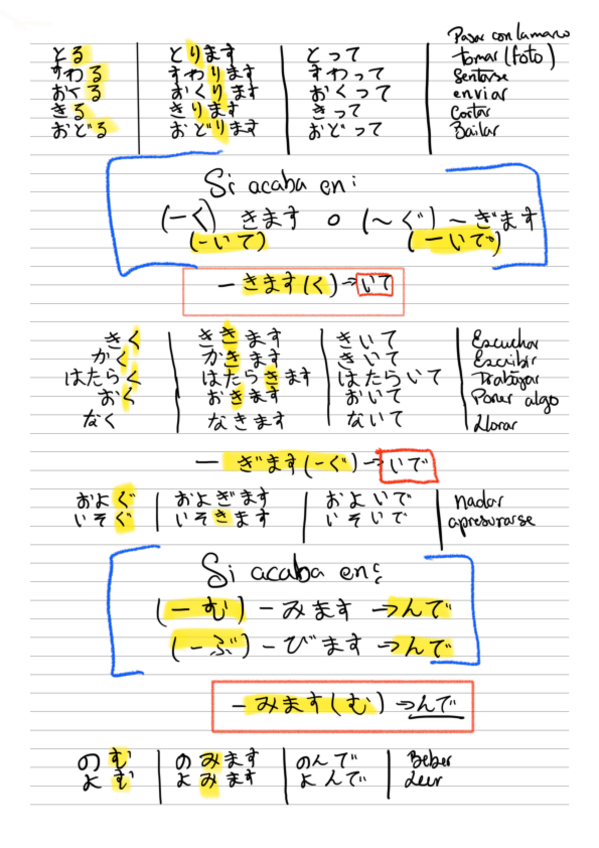 Pasar con la mano
とる とります とって tomar (foto)
すわる すわります すわって Sentarse
おくる おくります おくって enviar
きる きります きって Cortar
おどる おどります おどって Bailar
Si acaba en:
(-く) きます o (~ぐ) ~ぎます
(-いて) (-いで)
- きます (く) → いて
きく ききます きいて Escuchar
かく かきます きいて Escribir
はたらく はたらきます はたらいて Trabajar
おく おきます おいて Poner algo
なく なきます ないて Llorar
- ぎます (-ぐ) → いで
およぐ およぎます およいで nadar
いそぐ いそきます いそいで apresurarse
Si acaba en:
(-む) -みます → んで
(-ぶ) -びます → んで
- みます (む) → んで
のむ のみます のんで Beber
よむ よみます よんで Leer